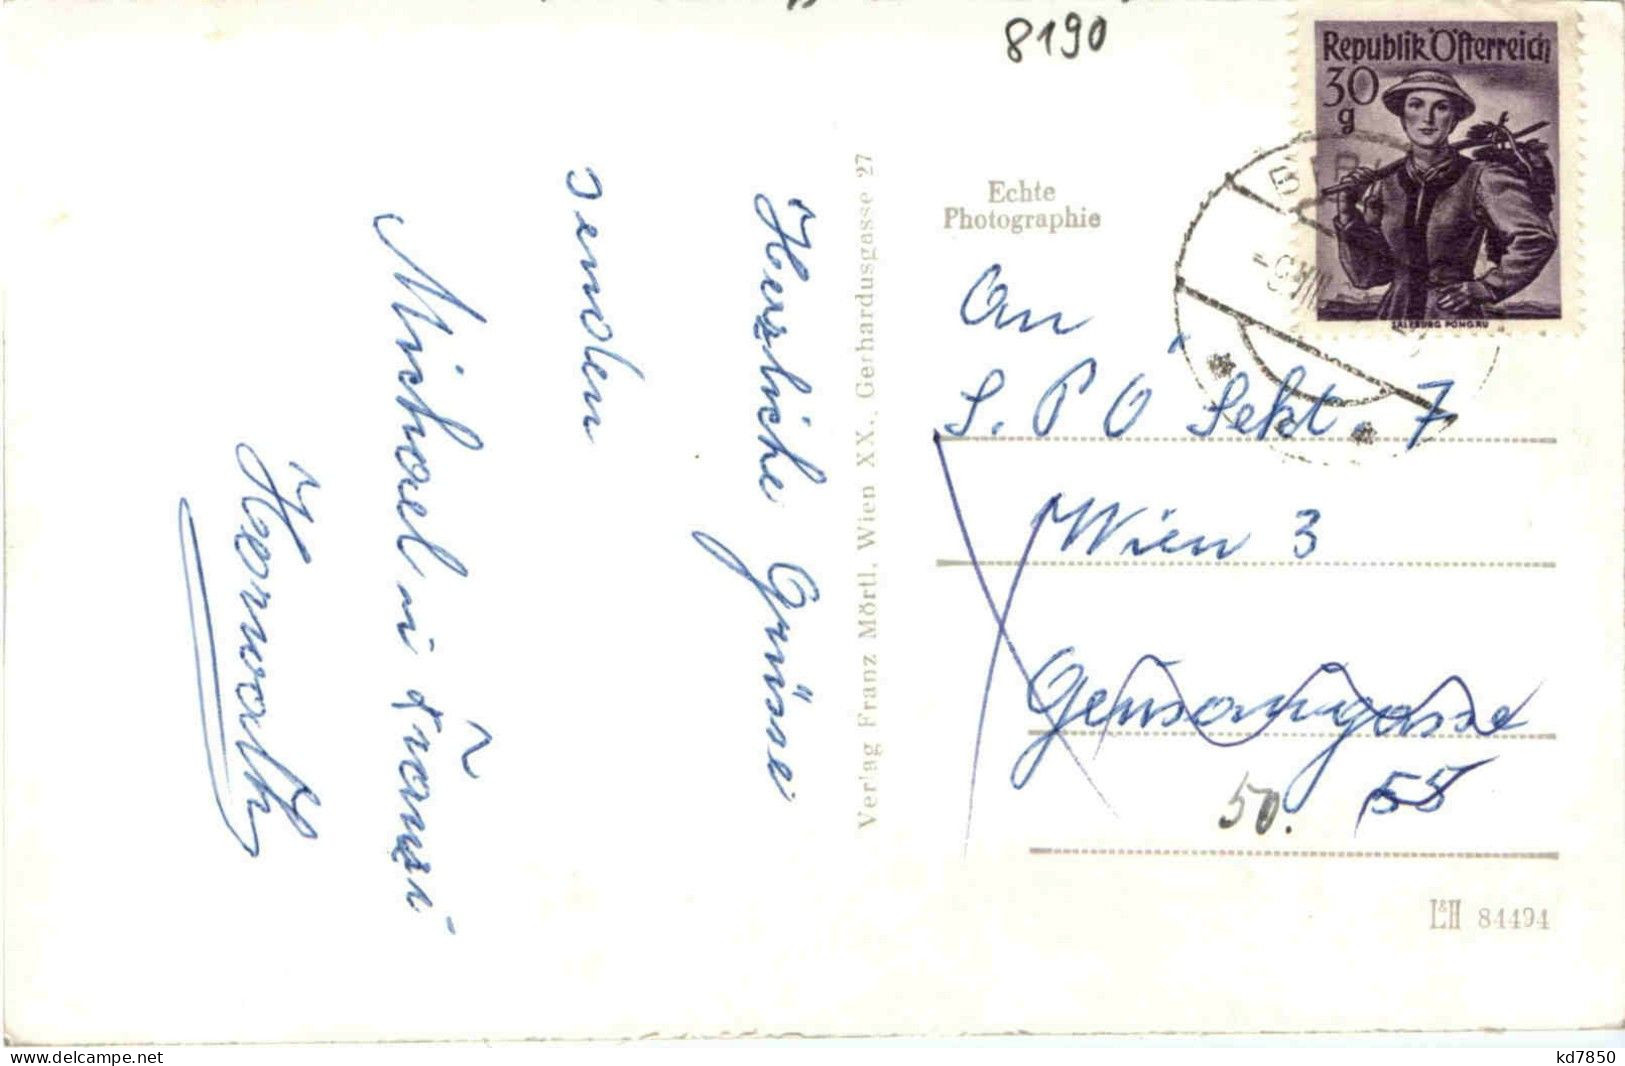 8190
Republik Österreich
30
g
SALZBURG PONGAU
Echte
Photographie
An
S. P Ö Sekt. 7
Wien 3
Geusaugasse
55
50.
L&H 84494
Verlag Franz Mörtl, Wien XX., Gerhardusgasse 27
Herzliche Grüsse
senden
Michael u Franzi
Hornvath
delcampe.net
kd7850